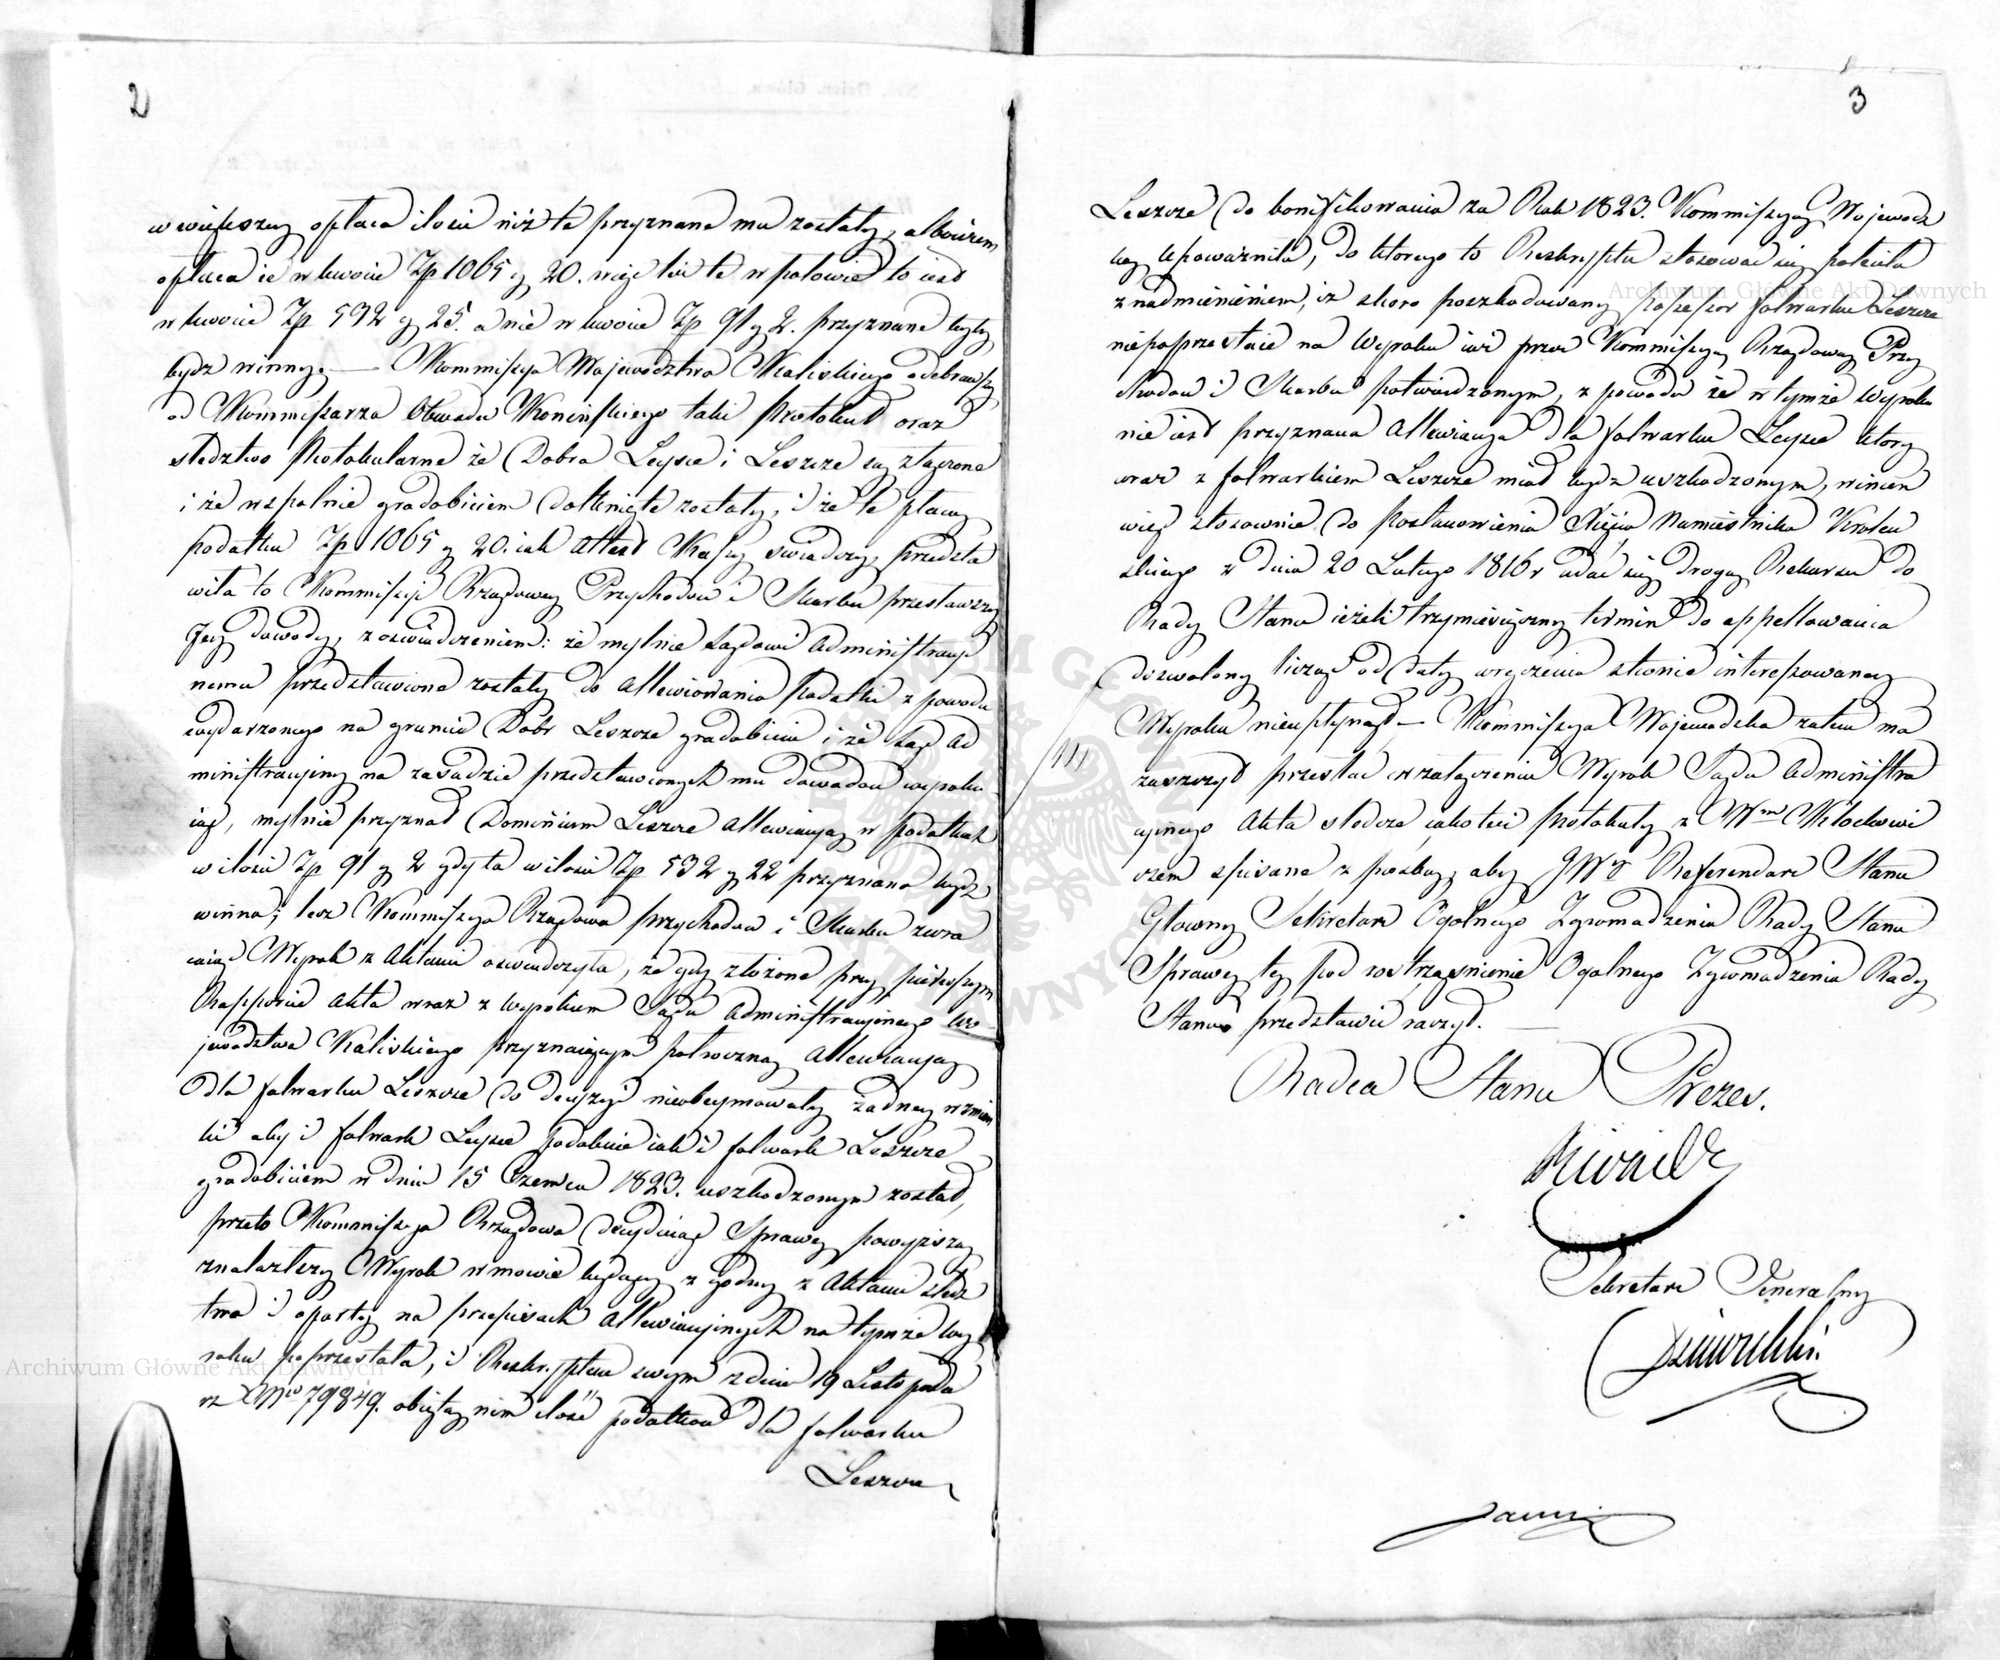 2
w większey opłaca ilości niż te przyznane mu zostały, albowiem
opłaca ie w kwocie Zp 1065 g 20. więc też te w połowie to iest
w kwocie Zp 532 g 25. a nie w kwocie Zp 91 g 2. przyznane były
bydz winny. — Kommissya Woiewództwa Kaliskiego odebrawszy
od Kommissarza Obwodu Konińskiego taki Protokuł oraz
śledztwo Protokularne że Dobra Leysce i Leszcze są złączone
i że wspolnie gradobiciem dotknięte zostały, i że te płacą
podatku Zp 1065 g 20. iak Attest Kassy świadczy, przedsta
wiła to Kommissyi Rządowey Przychodów i Skarbu przesławszy
Jey dowody, z oświadczeniem: że mylnie Sądowi Administracyi
nemu przedstawione zostały do allewiowania Podatki z powodu
wydarzonego na gruncie Dóbr Leszcze gradobicia i że Sąd Ad
ministracyiny na zasadzie przedstawionych mu dowodów wyroku
iąc, mylnie przyznał Dominium Leszcze Allewiacyą w podatkach
w ilości Zp 91 g 2 gdy ta w ilości Zp 532 g 22 przyznana bydz
winna; lecz Kommissya Rządowa Przychodów i Skarbu zwra
caiąc Wyrok z Aktami oświadczyła, że gdy złożone przy pierwszym
Rapporcie Akta wraz z Wyrokiem Sądu Administracyinego Wo
jewództwa Kaliskiego przyznaiącym połroczną Allewiacyą
dla folwarku Leszcze do decyzyi nieobeymowały żadney wzmian
ki aby i folwark Leysce podobnie iak i folwark Leszcze
gradobiciem w dniu 15 Czerwca 1823. uszkodzonym został,
przeto Kommissya Rządowa decyduiąc Sprawę powyższą
znalazłszy Wyrok w mowie będący zgodny z Aktami śledz
twa i oparty na przepisach Allewiacyinych na tymże Wy
roku poprzestała, i Reskryptem swym z dnia 19 Listopada
rz Nro 79849. obiętą nim ilość podatków dla folwarku
Leszcze
3
Leszcze do bonifikowania za Rok 1823. Kommissyą Wojewódz
ką upoważniła, do którego to Reskryptu stosować się poleciła
z nadmienieniem, iż skoro poszkodowany Possessor folwarku Leszcze
niepoprzestaie na Wyroku iuż przez Kommissyą Rządową Przy
chodów i Skarbu potwierdzonym, z powodu że w tymże Wyroku
nie iest przyznana Allewiacya dla folwarku Leysce który
wraz z folwarkiem Leszcze miał bydz uszkodzonym, winien
więc stosownie do Postanowienia Xięcia Namiestnika Królew
skiego z dnia 20 Lutego 1816 r udać się drogą Rekursu do
Rady Stanu ieżeli trzymiesięczny termin do appellowania
dozwolony licząc od daty wręczenia stronie interessowaney
Wyroku nieupłynął — Kommissya Wojewódzka zatem ma
zaszczyt przesłać w załączeniu Wyrok Sądu Administra
cyinego Akta śledcze, iakoteż Protokuły z Wm Kłockowi
czem spisane z prośbą, aby JWy Referendarz Stanu
Główny Sekretarz Ogolnego Zgromadzenia Rady Stanu
Sprawę tę pod rostrząśnienie Ogolnego Zgromadzenia Rady
Stanu przedstawić raczył.
Radca Stanu Prezes.
Sekretarz Generalny